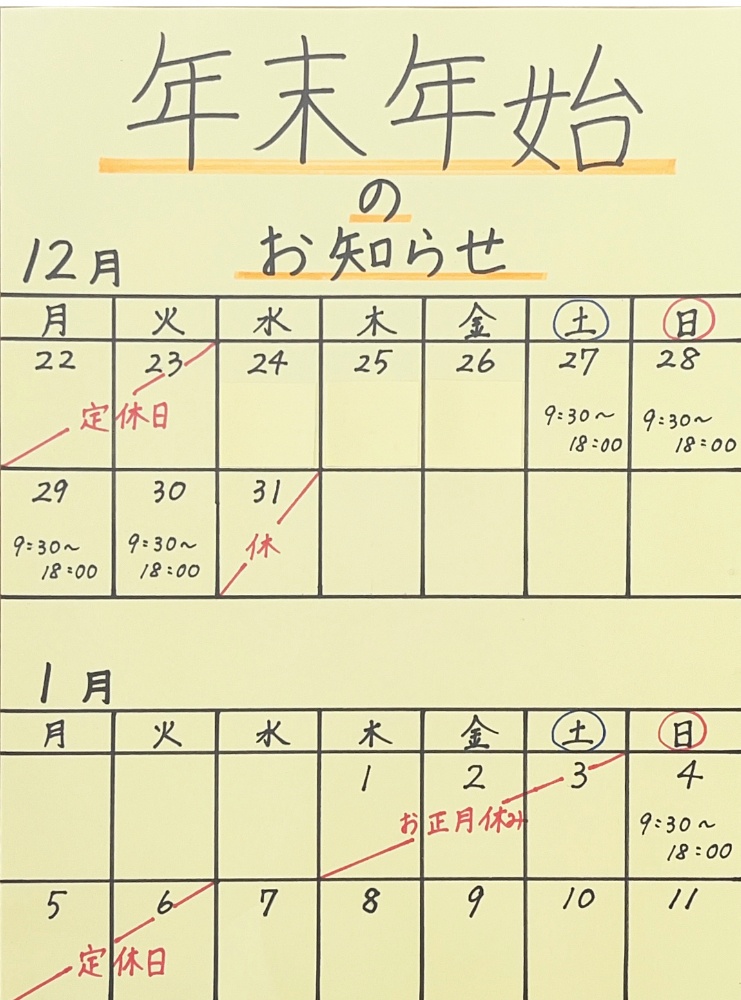 年末年始
の
お知らせ
12月
月 火 水 木 金 土 日
22 23 24 25 26 27 28
定休日
9:30~ 9:30~
18:00 18:00
29 30 31
9:30~ 9:30~ 休
18:00 18:00
1月
月 火 水 木 金 土 日
1 2 3 4
お正月休み 9:30~
18:00
5 6 7 8 9 10 11
定休日